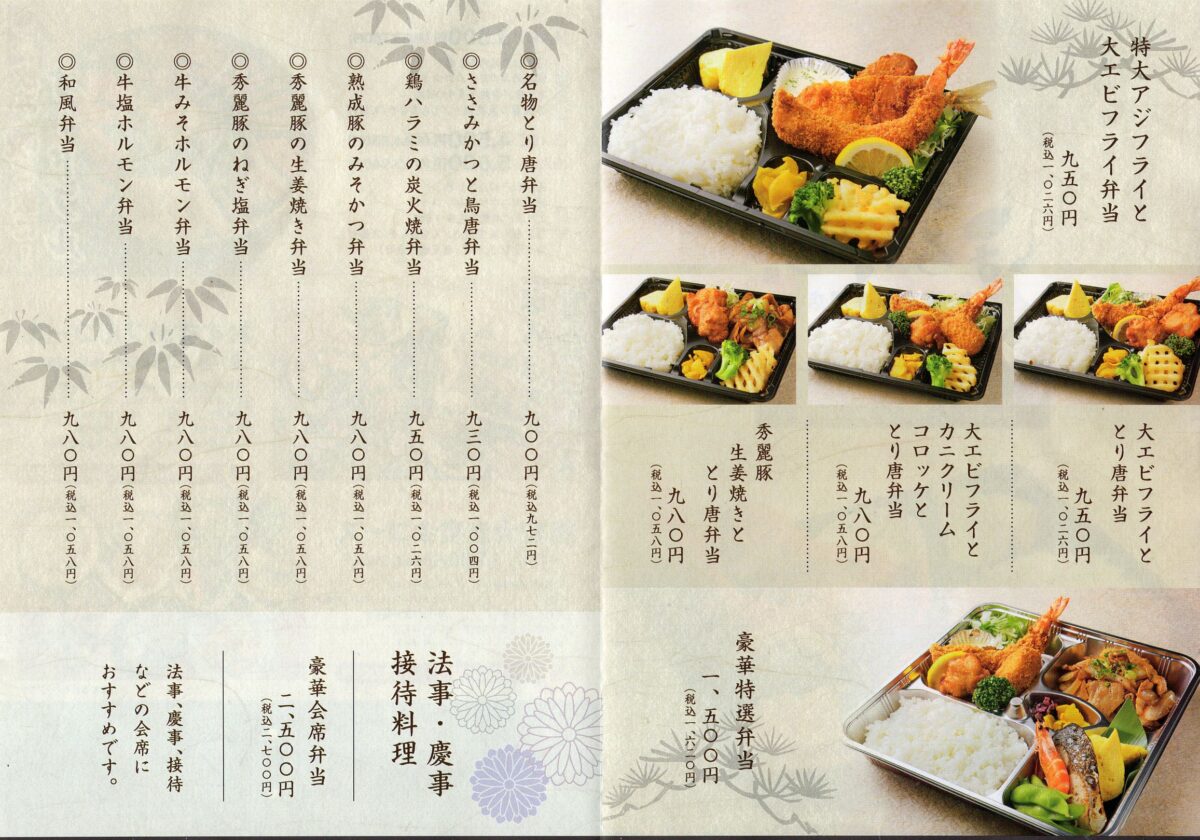 特大アジフライと
大エビフライ弁当
九五〇円
(税込一、〇二六円)
大エビフライと
とり唐弁当
九五〇円
(税込一、〇二六円)
大エビフライと
カニクリーム
コロッケと
とり唐弁当
九八〇円
(税込一、〇五八円)
秀麗豚
生姜焼きと
とり唐弁当
九八〇円
(税込一、〇五八円)
豪華特選弁当
一、五〇〇円
(税込一、六二〇円)
◎名物とり唐弁当……九〇〇円(税込九七二円)
◎ささみかつと鳥唐弁当……九三〇円(税込一、〇〇四円)
◎鶏ハラミの炭火焼弁当……九五〇円(税込一、〇二六円)
◎熟成豚のみそかつ弁当……九八〇円(税込一、〇五八円)
◎秀麗豚の生姜焼き弁当……九八〇円(税込一、〇五八円)
◎秀麗豚のねぎ塩弁当……九八〇円(税込一、〇五八円)
◎牛みそホルモン弁当……九八〇円(税込一、〇五八円)
◎牛塩ホルモン弁当……九八〇円(税込一、〇五八円)
◎和風弁当……九八〇円(税込一、〇五八円)
法事・慶事
接待料理
豪華会席弁当
二、五〇〇円
(税込二、七〇〇円)
法事、慶事、接待
などの会席に
おすすめです。